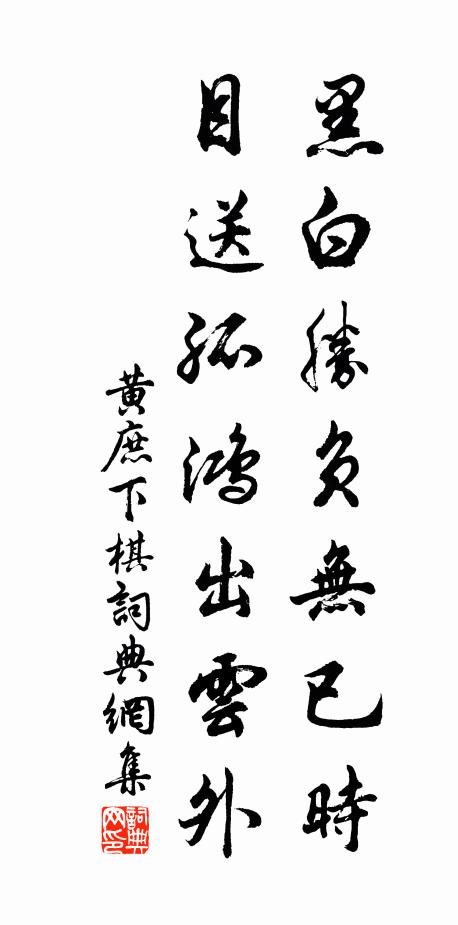 黑白勝負無已時
目送孤鴻出雲外
黃庶下棋詞典網集
詞典网印